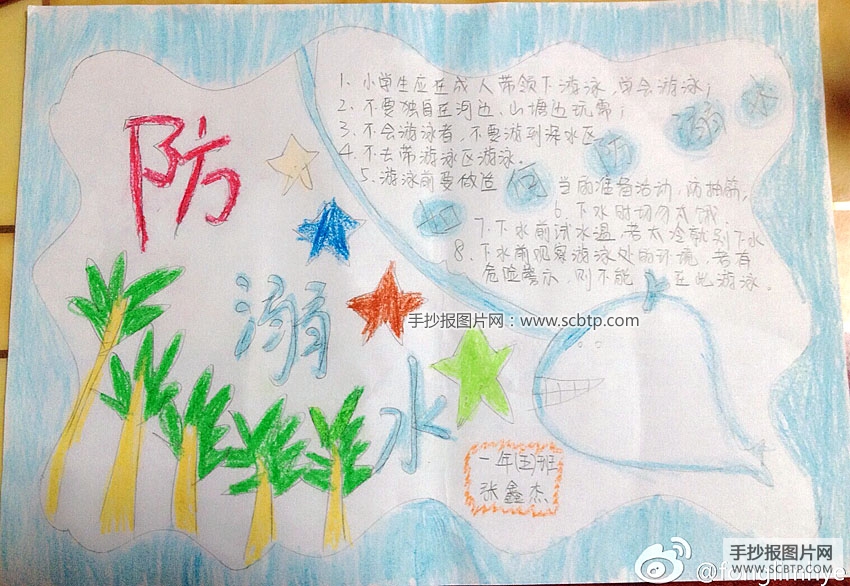 防
溺
水
如
何
防
溺
水
1、小学生应在成人带领下游泳,学会游泳;
2、不要独自在河边、山塘边玩耍;
3、不会游泳者,不要游到深水区
4、不去带游泳区游泳。
5、游泳前要做适当的准备活动,防抽筋,
6、下水时切勿太饿
7、下水前试水温,若太冷就别下水
8、下水前观察游泳处的环境,若有
危险警示,则不能在此游泳。
手抄报图片网:www.scbtp.com
一年五班
张鑫杰
手抄报图片网
WWW.SCBTP.COM